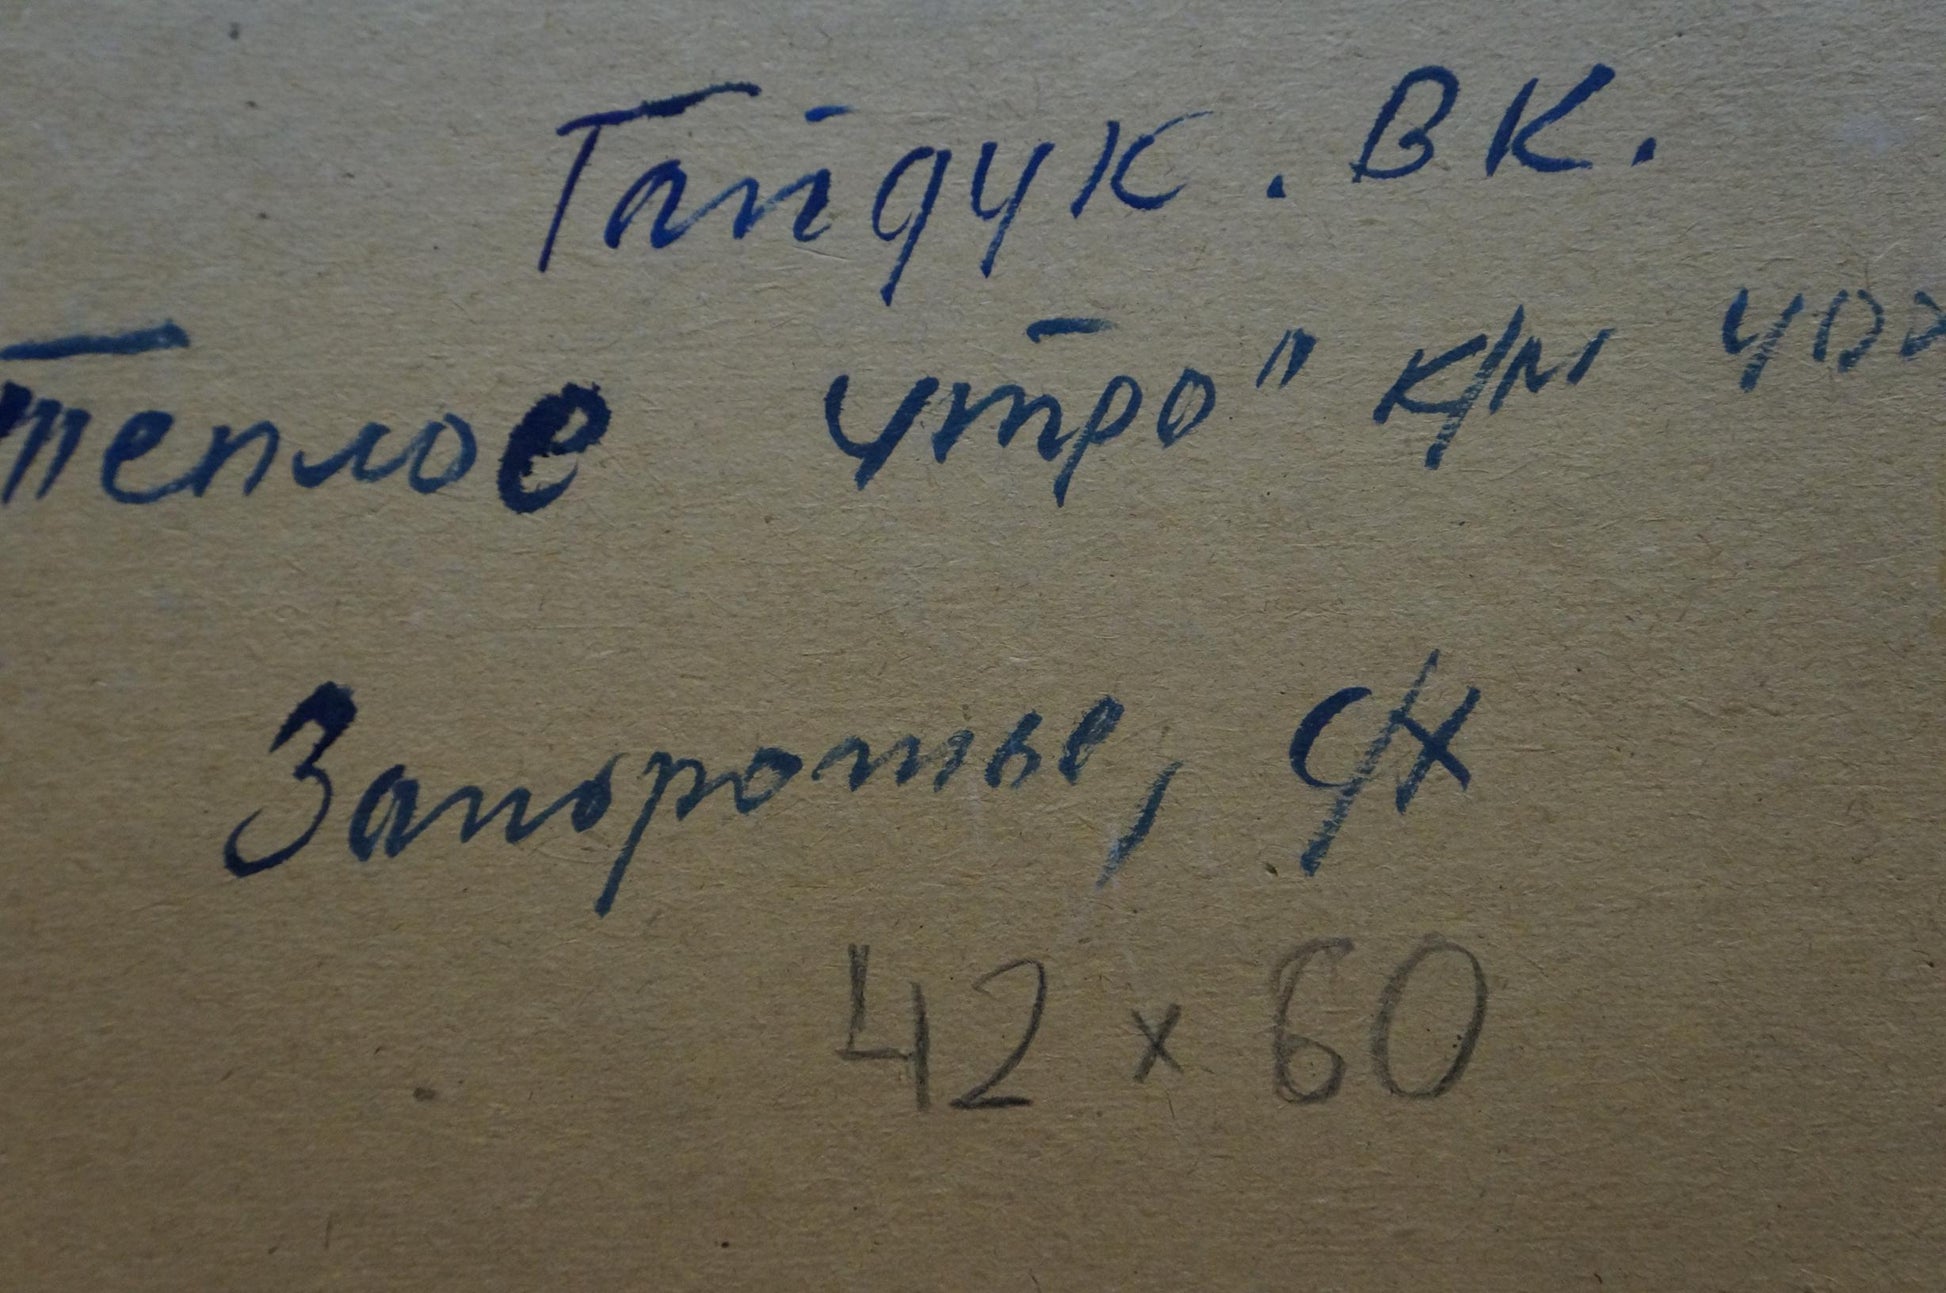 Гайдук. В К.
Теплое утро" к/м 40х
Запорожье, с/х
42 x 60